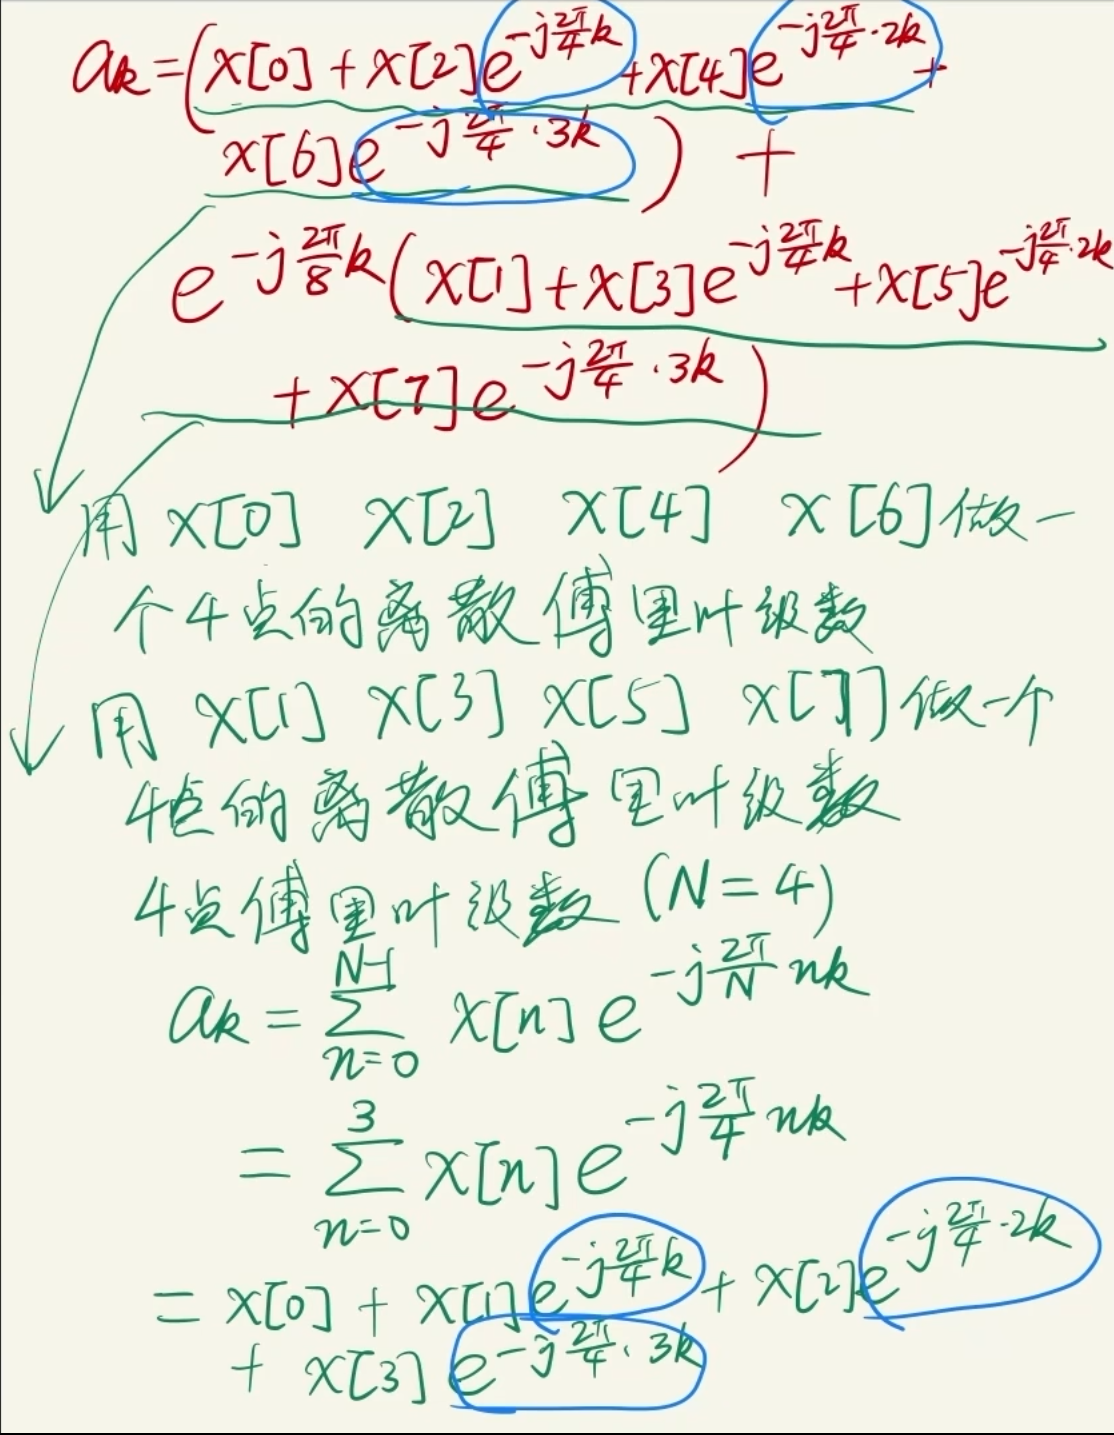 aₖ = (x[0] + x[2]e^{-j\frac{2π}{4}k} + x[4]e^{-j\frac{2π}{4}·2k} +
x[6]e^{-j\frac{2π}{4}·3k}) +
e^{-j\frac{2π}{8}k}(x[1] + x[3]e^{-j\frac{2π}{4}k} + x[5]e^{-j\frac{2π}{4}·2k}
+ x[7]e^{-j\frac{2π}{4}·3k})
用 x[0] x[2] x[4] x[6] 做一
个4点的离散傅里叶级数
用 x[1] x[3] x[5] x[7] 做一个
4点的离散傅里叶级数
4点傅里叶级数 (N=4)
aₖ = \sum_{n=0}^{N-1} x[n] e^{-j\frac{2π}{N}nk}
= \sum_{n=0}^{3} x[n] e^{-j\frac{2π}{4}nk}
= x[0] + x[1]e^{-j\frac{2π}{4}k} + x[2]e^{-j\frac{2π}{4}·2k}
+ x[3]e^{-j\frac{2π}{4}·3k}